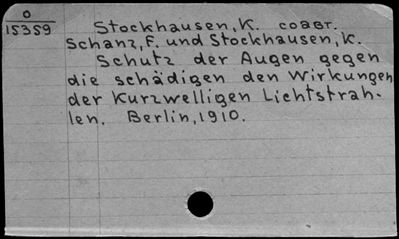 0
15359
Stockhausen, K. соавт.
Schanz, F. und Stockhausen, K.
Schutz der Augen gegen
die schädigen den Wirkungen
der Kurzwelligen Lichtstrah-
len. Berlin, 1910.